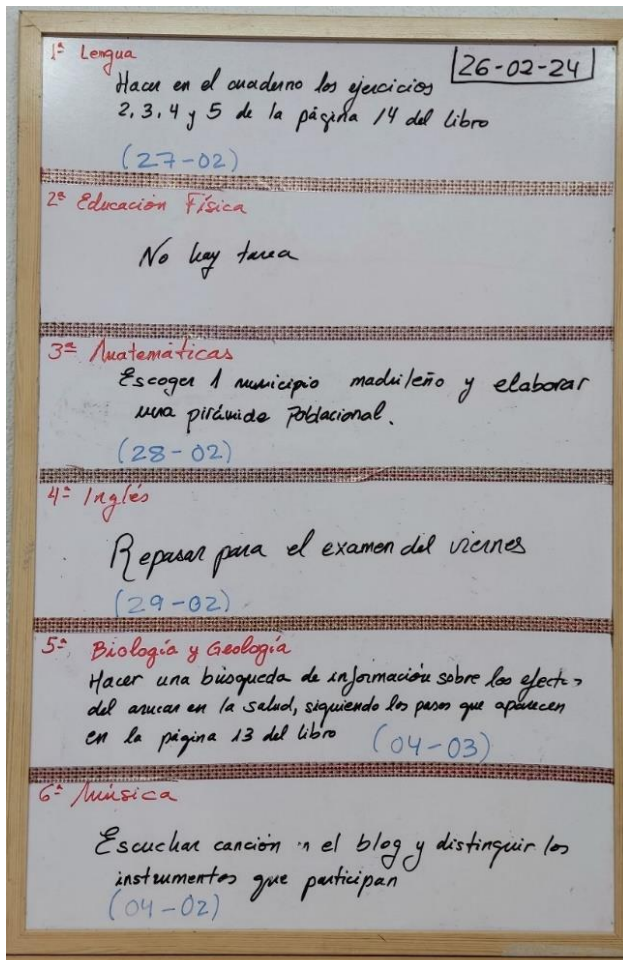 1ª Lengua
26-02-24
Hacer en el cuaderno los ejercicios
2, 3, 4 y 5 de la página 14 del libro
(27-02)
2ª Educación Física
No hay tarea
3ª Matemáticas
Escoger 1 municipio madrileño y elaborar
una pirámide Poblacional.
(28-02)
4ª Inglés
Repasar para el examen del viernes
(29-02)
5ª Biología y Geología
Hacer una búsqueda de información sobre los efectos
del azucar en la salud, siguiendo los pasos que aparecen
en la página 13 del libro (04-03)
6ª Música
Escuchar canción n el blog y distinguir los
instrumentos que participan
(04-02)